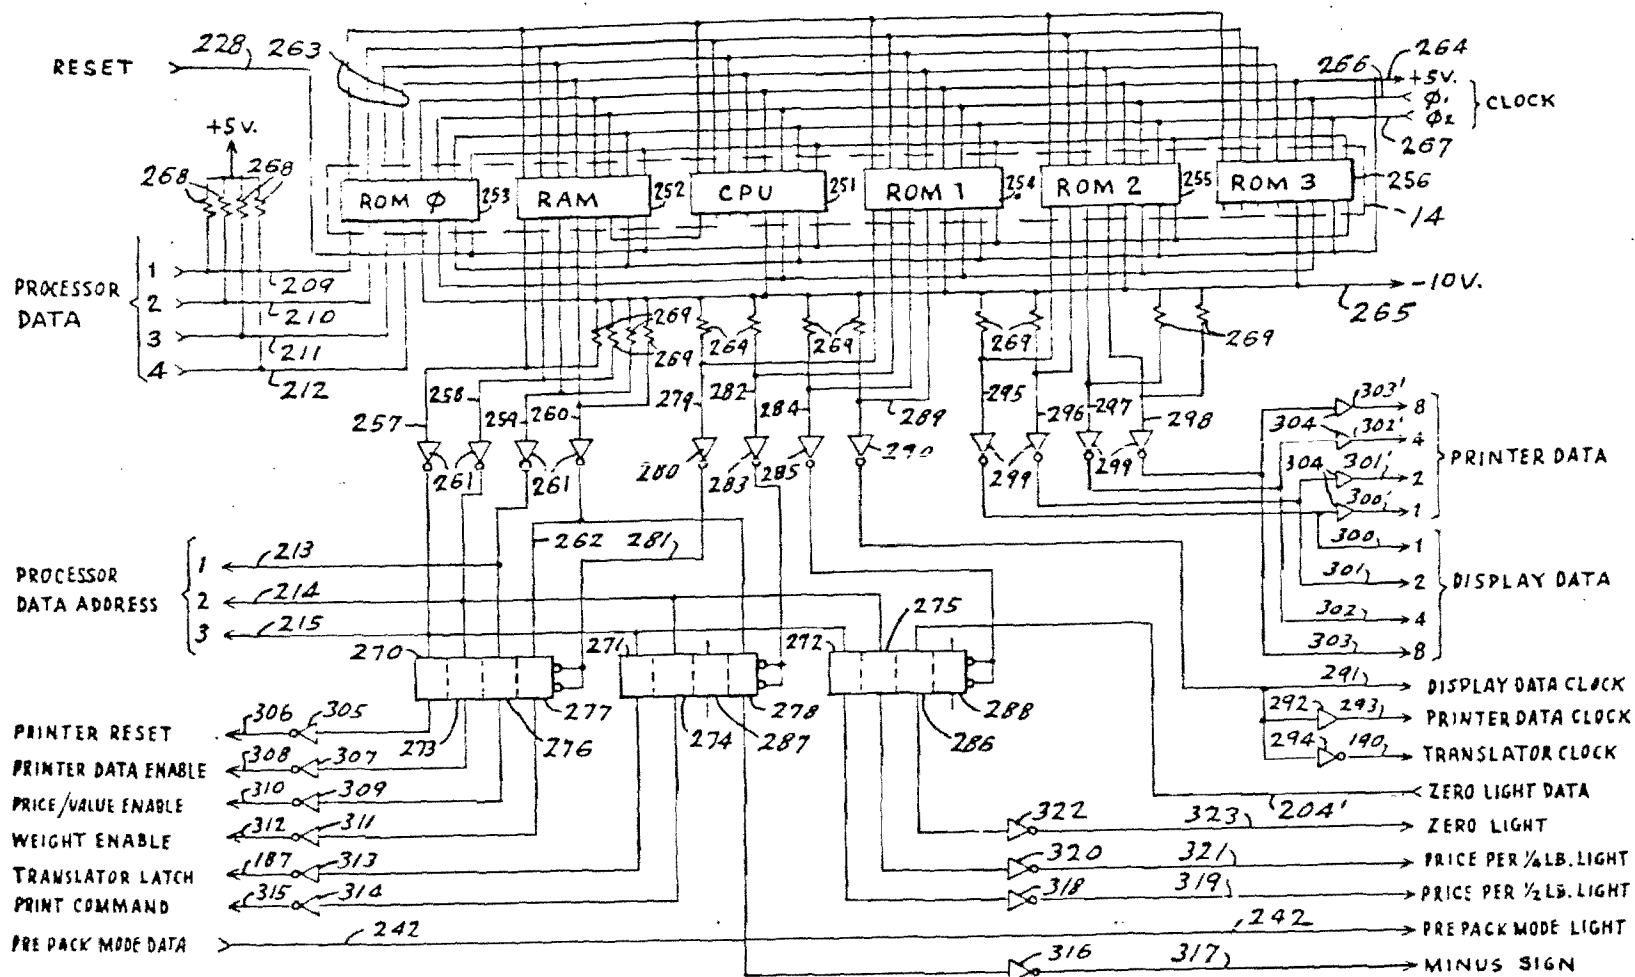 RESET 228 263
266 264
+5V.
Ø1
Ø2
CLOCK
267
+5V.
268 268
ROM Ø 253
RAM 252
CPU 251
ROM 1 254
ROM 2 255
ROM 3 256
14
PROCESSOR DATA
1 209
2 210
3 211
4 212
-10V.
265
269 269 269 269 269 269
257 258 259 260 279 282 284 289 295 296 297 298
261 261 280 283 285 290 299 299
304 303' 8
302' 4
304 301' 2
300' 1
PRINTER DATA
300 1
301 2
302 4
303 8
DISPLAY DATA
262 281
PROCESSOR DATA ADDRESS
1 213
2 214
3 215
270 271 272 275
273 276 277 274 287 278 286 288
291 DISPLAY DATA CLOCK
292 293 PRINTER DATA CLOCK
294 190 TRANSLATOR CLOCK
204' ZERO LIGHT DATA
PRINTER RESET 306 305
PRINTER DATA ENABLE 308 307
PRICE/VALUE ENABLE 310 309
WEIGHT ENABLE 312 311
TRANSLATOR LATCH 187 313
PRINT COMMAND 315 314
PREPACK MODE DATA 242
322 323 ZERO LIGHT
320 321 PRICE PER 1/4 LB. LIGHT
318 319 PRICE PER 1/2 LB. LIGHT
242 PREPACK MODE LIGHT
316 317 MINUS SIGN